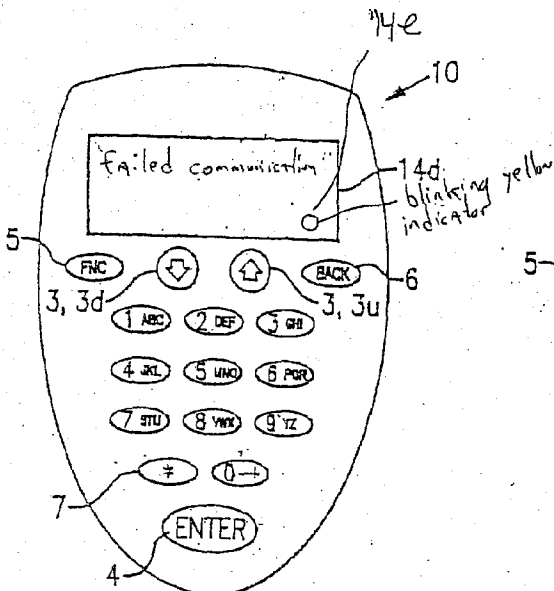 14e
10
"Failed communication"
14d
blinking yellow
indicator
5
FNC
BACK
6
5
3, 3d
3, 3u
1 ABC 2 DEF 3 GHI
4 JKL 5 MNO 6 PQR
7 STU 8 VWX 9 YZ
7
*
0
ENTER
4